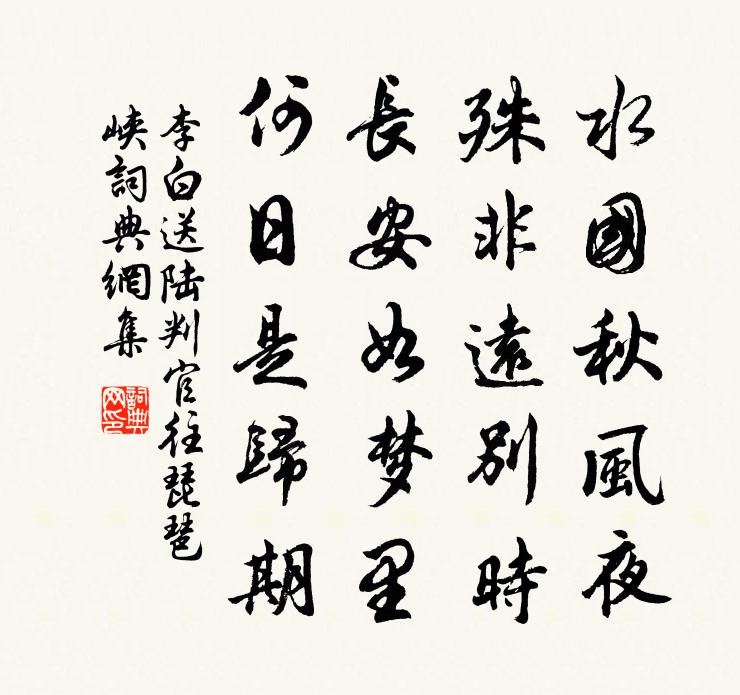 水國秋風夜
殊非遠別時
長安如梦里
何日是歸期
李白送陆判官往琵琶
峽詞典網集
詞典
网印